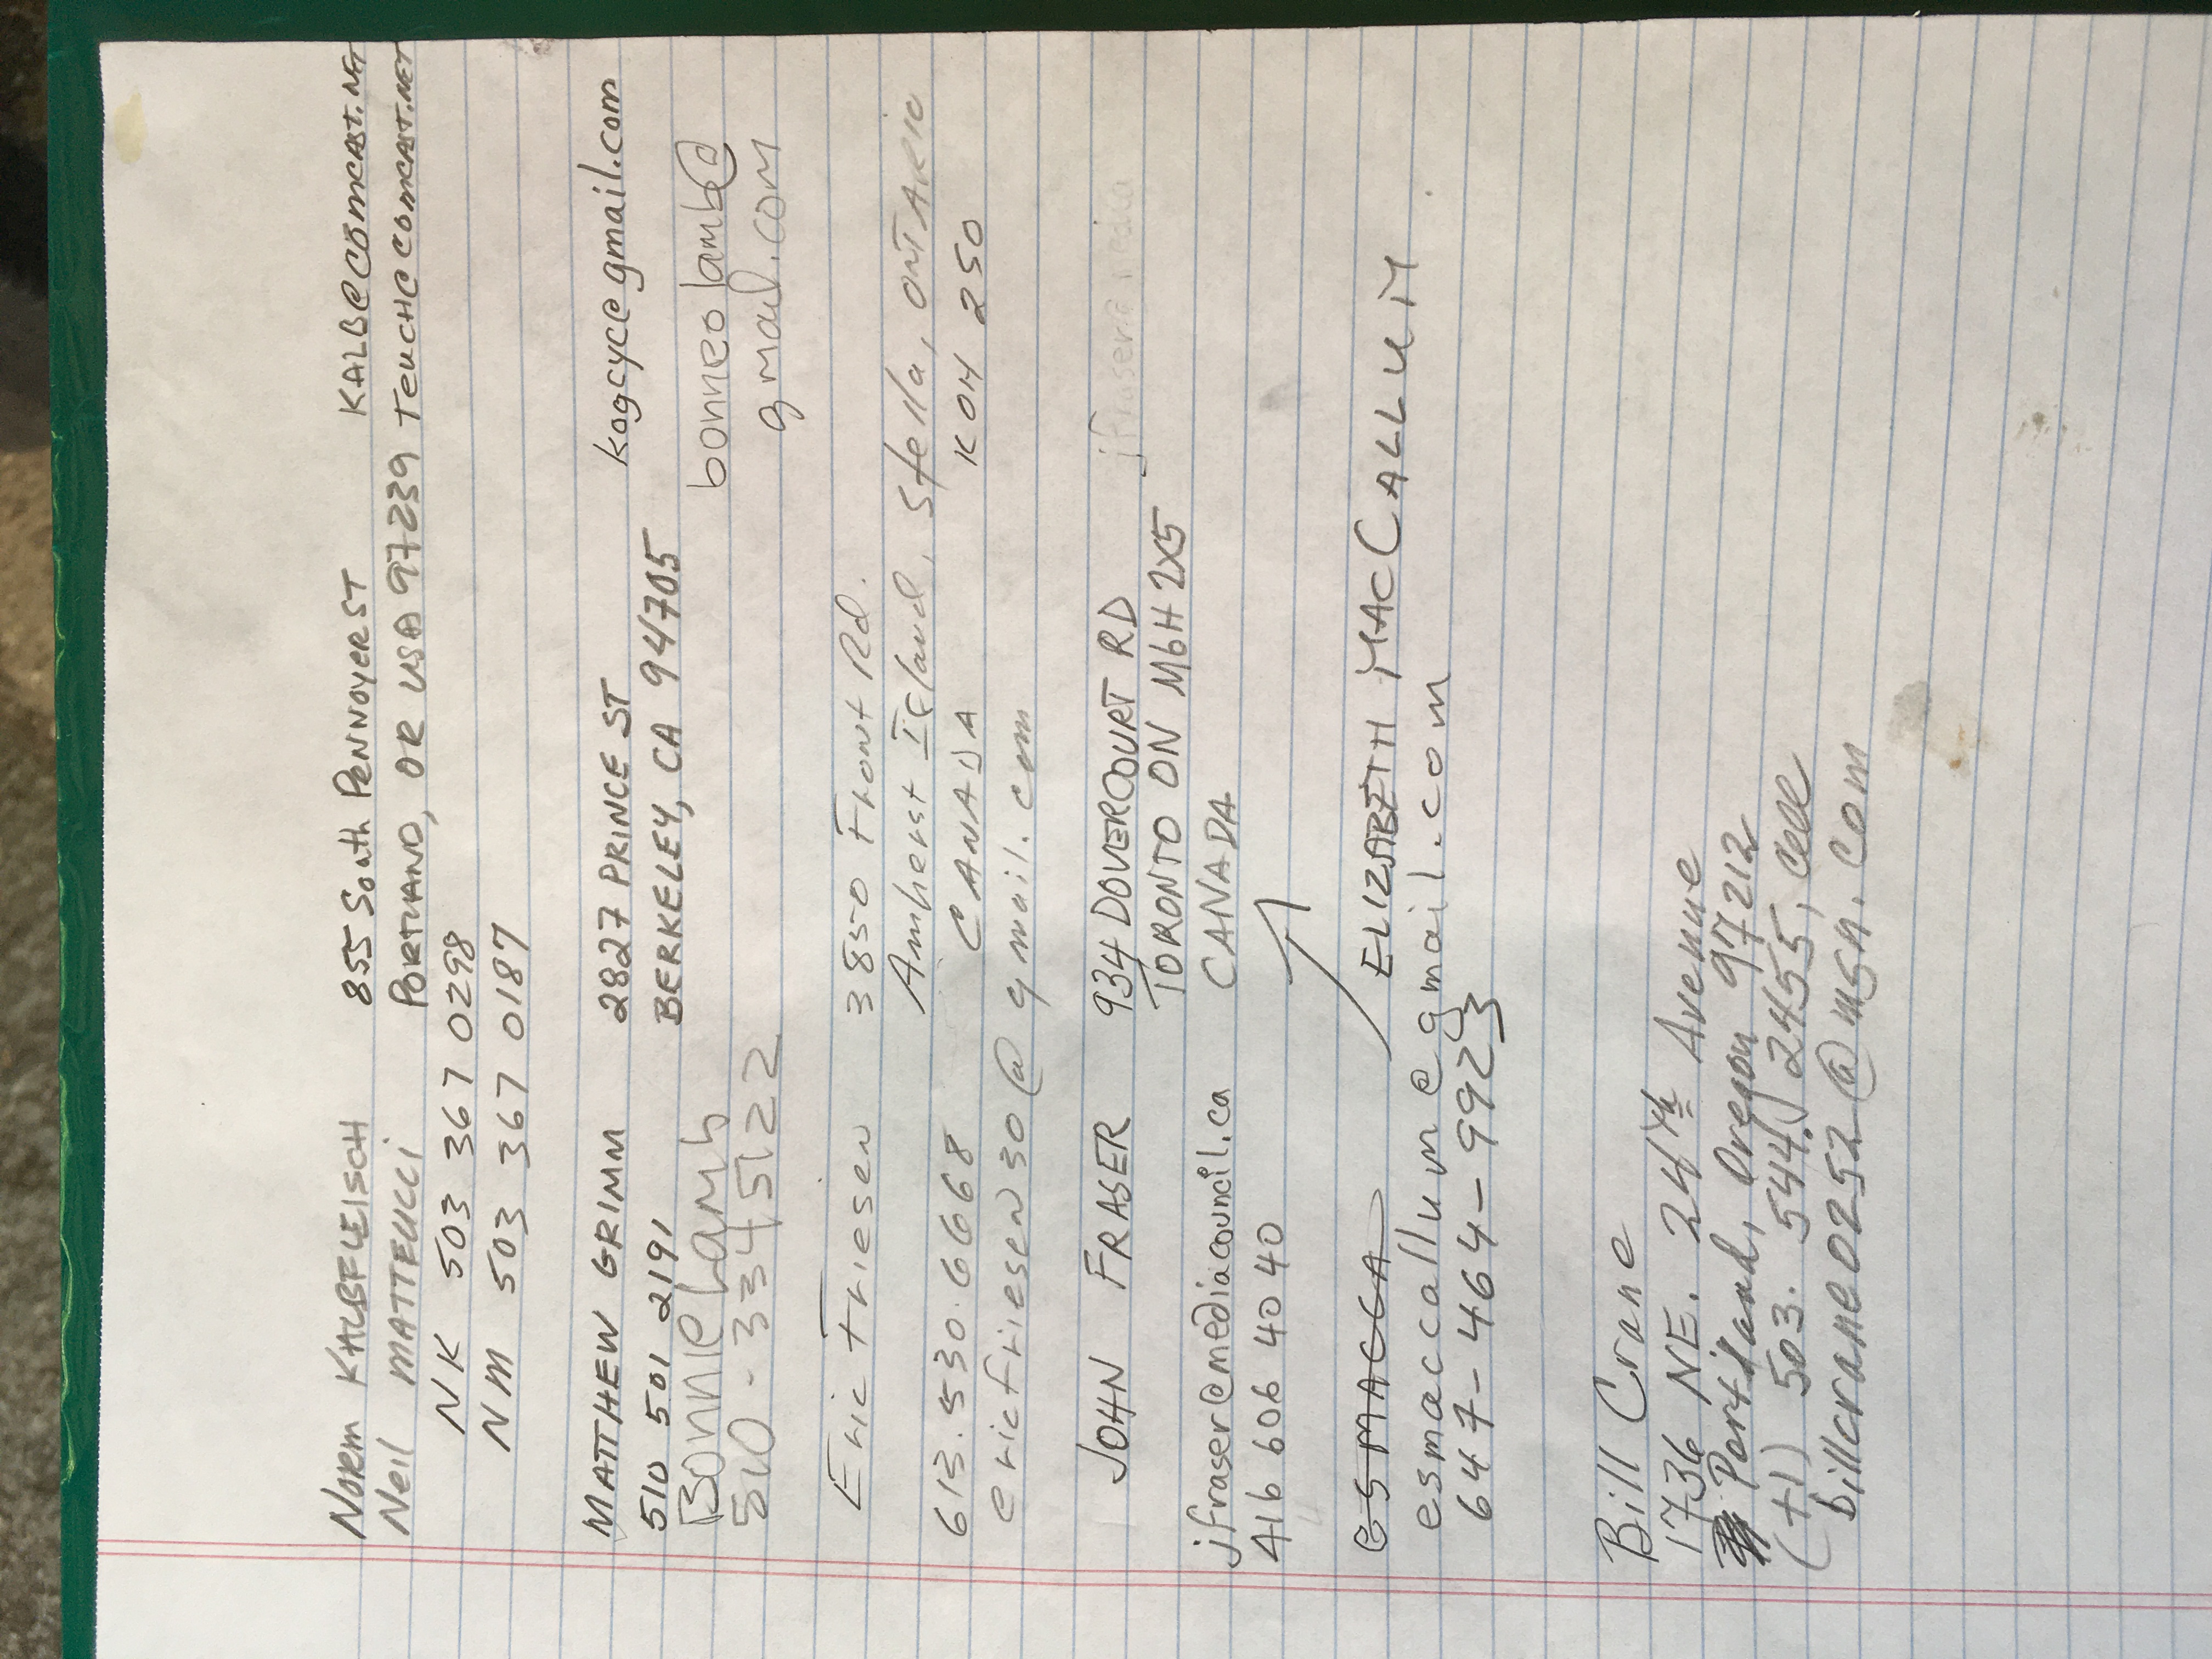 Norm KALBFLEISCH 855 South PENNOYER ST KALB@COMCAST.NET
Neil MATTEUCCI PORTLAND, OR USA 97239 TEUCH@COMCAST.NET
NK 503 367 0298
NM 503 367 0187
MATTHEW GRIMM 2827 PRINCE ST kogcyc@gmail.com
510 501 2191 BERKELEY, CA 94705
Bonnie Lamb bonneolamb@
510-3345122 gmail.com
Eric Friesen 3850 Front Rd.
Amherst Island, Stella, ONTARIO
613.530.6668 CANADA K0H 2S0
ericfriesen30@gmail.com
JOHN FRASER 934 DOVERCOURT RD jfraser@media
TORONTO ON M6H 2X5
jfraser@mediacouncil.ca CANADA
416 606 40 40
esmacca ELIZABETH MACCALLUM
esmaccallum@gmail.com
647-464-9923
Bill Crane
1736 NE. 24th Avenue
Portland, Oregon 97212
(+1) 503. 544. 2455, cell
billcrane0252@msn.com